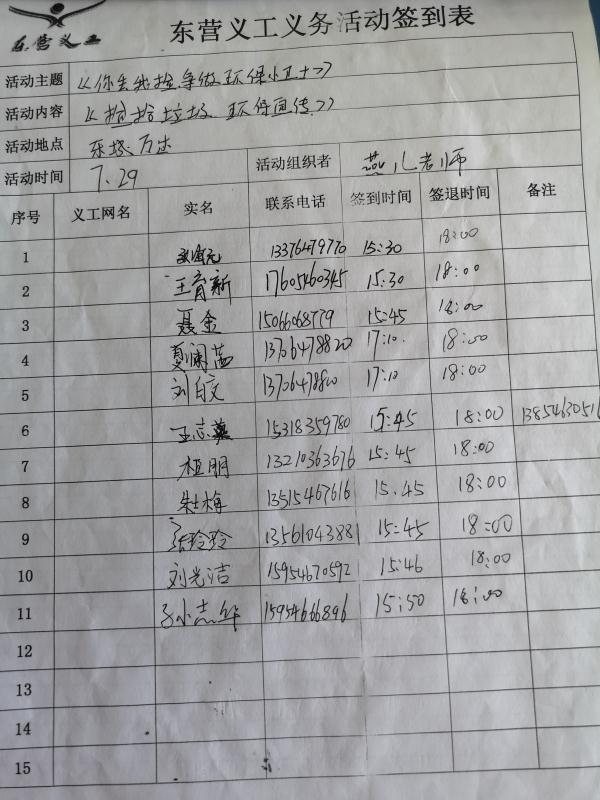 东营义工义务活动签到表
东营义工
活动主题 《你丢我捡 争做环保小卫士》
活动内容 《捡拾垃圾 环保宣传》
活动地点 东城万达
活动时间 7.29 活动组织者 燕儿老师
序号 义工网名 实名 联系电话 签到时间 签退时间 备注
1 13376479770 15:30 18:00
2 王育新 17605460345 15:30 18:00
3 聂金 15066068779 15:45 18:00
4 13706478820 17:10 18:00
5 刘自文 13706478820 17:10 18:00
6 王志英 15318359780 15:45 18:00 1385463051
7 桓明 13210363676 15:45 18:00
8 杜梅 13515467616 15.45 18:00
9 张玲玲 13561043881 15:45 18:00
10 刘光洁 15954670592 15:46 18:00
11 孙志华 15954666896 15:50 18:00
12
13
14
15